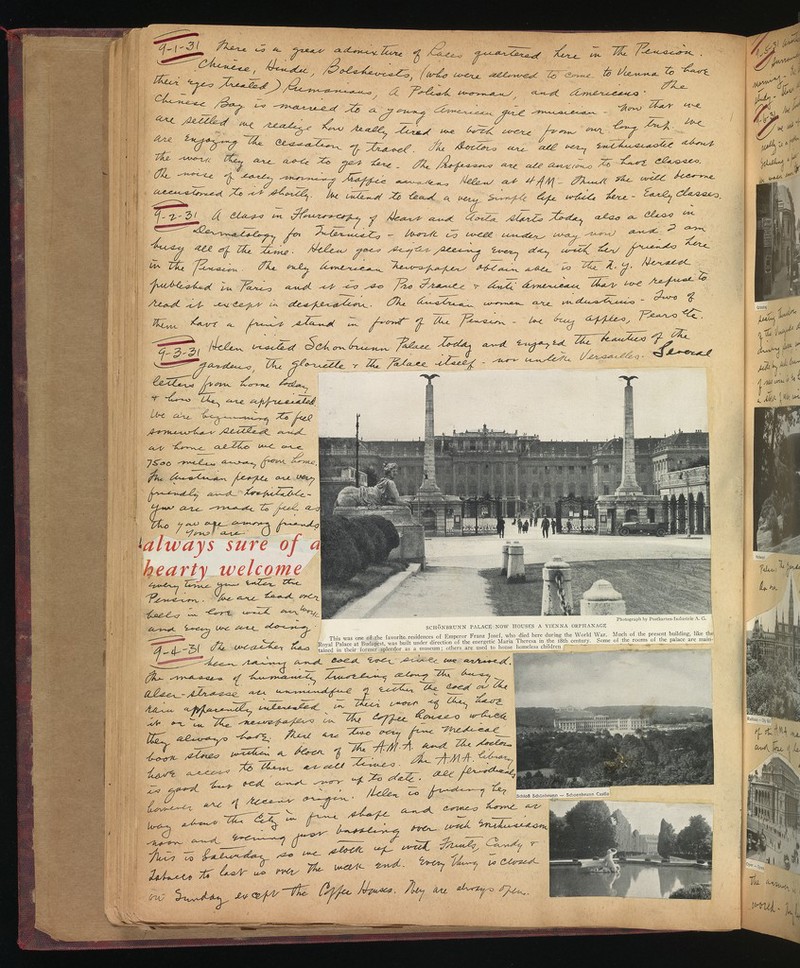 9-1-31 There is a great admixture of Races quartered here in the Pension.
Chinese, Hindu, Bolshevists, (who were allowed to come to Vienna to have
their eyes treated) Rumanians, a Polish woman, and Americans. The
Chinese Boy is married to a young American girl musician - Now that we
are settled we realize how really tired we both were from our long trip. We
are enjoying the cessation of travel. The Doctors are all very enthusiastic about
the work they are able to get here. The Professors are all anxious to have classes.
The noise of early morning traffic awakens Helen at 4 AM - Think she will become
accustomed to it shortly. We intend to lead a very simple life while here - Early Classes.
9-2-31 A class in Flouroscopy of Heart and Aorta starts today also a class in
Dermatology for Internists - Work is well under way now and I am
busy all of the time. Helen goes sight seeing every day with her friends here
in the Pension. The only American newspaper obtainable is the N.Y. Herald
published in Paris and it is so Pro France & Anti American that we refuse to
read it except in desperation. The Austrian women are industrious - Two of
them have a fruit stand in front of the Pension - We buy apples, Pears etc.
9-3-31 Helen visited Schonbrunn Palace today and enjoyed the beauties of the
gardens, the Gloriette & the Palace itself - not unlike Versailles. Several
letters from home today
& how they are appreciated
We are beginning to feel
somewhat settled and
at home altho we are
7500 miles away from home.
The Austrian people are very
friendly and hospitable -
you are made to feel as
tho you are among friends
You are
always sure of a
hearty welcome
every time you enter the
Pension. We are head over
heels in love with our work
and every we are doing
SCHÖNBRUNN PALACE NOW HOUSES A VIENNA ORPHANAGE
This was one of the favorite residences of Emperor Franz Josef, who died here during the World War. Much of the present building, like the
Royal Palace at Budapest, was built under direction of the energetic Maria Theresa in the 18th century. Some of the rooms of the palace are main-
tained in their former splendor as a museum; others are used to house homeless children
9-4-31 The weather has
been rainy and cold ever since we arrived.
The masses of humanity traveling along the busy
Alser-strasse are unmindful of either the cold or the
rain apparently interested in their work if they have
it or in the newspapers in the Coffee Houses which
they always have. There are two very fine medical
book stores within a block of the A.M.A. and the doctors
have access to them at all times. The A.M.A. library
is good but old and not up to date. All periodicals
however are of recent origin. Helen is finding her
way about the City in fine shape and comes home at
noon and evening just bubbling over with enthusiasm
This is Saturday so we stock up with Fruits, Candy &
Tobacco to last us over the week end. Every thing is closed
on Sunday except the Coffee Houses. They are always open.
Schloß Schönbrunn — Schoenbrunn Castle